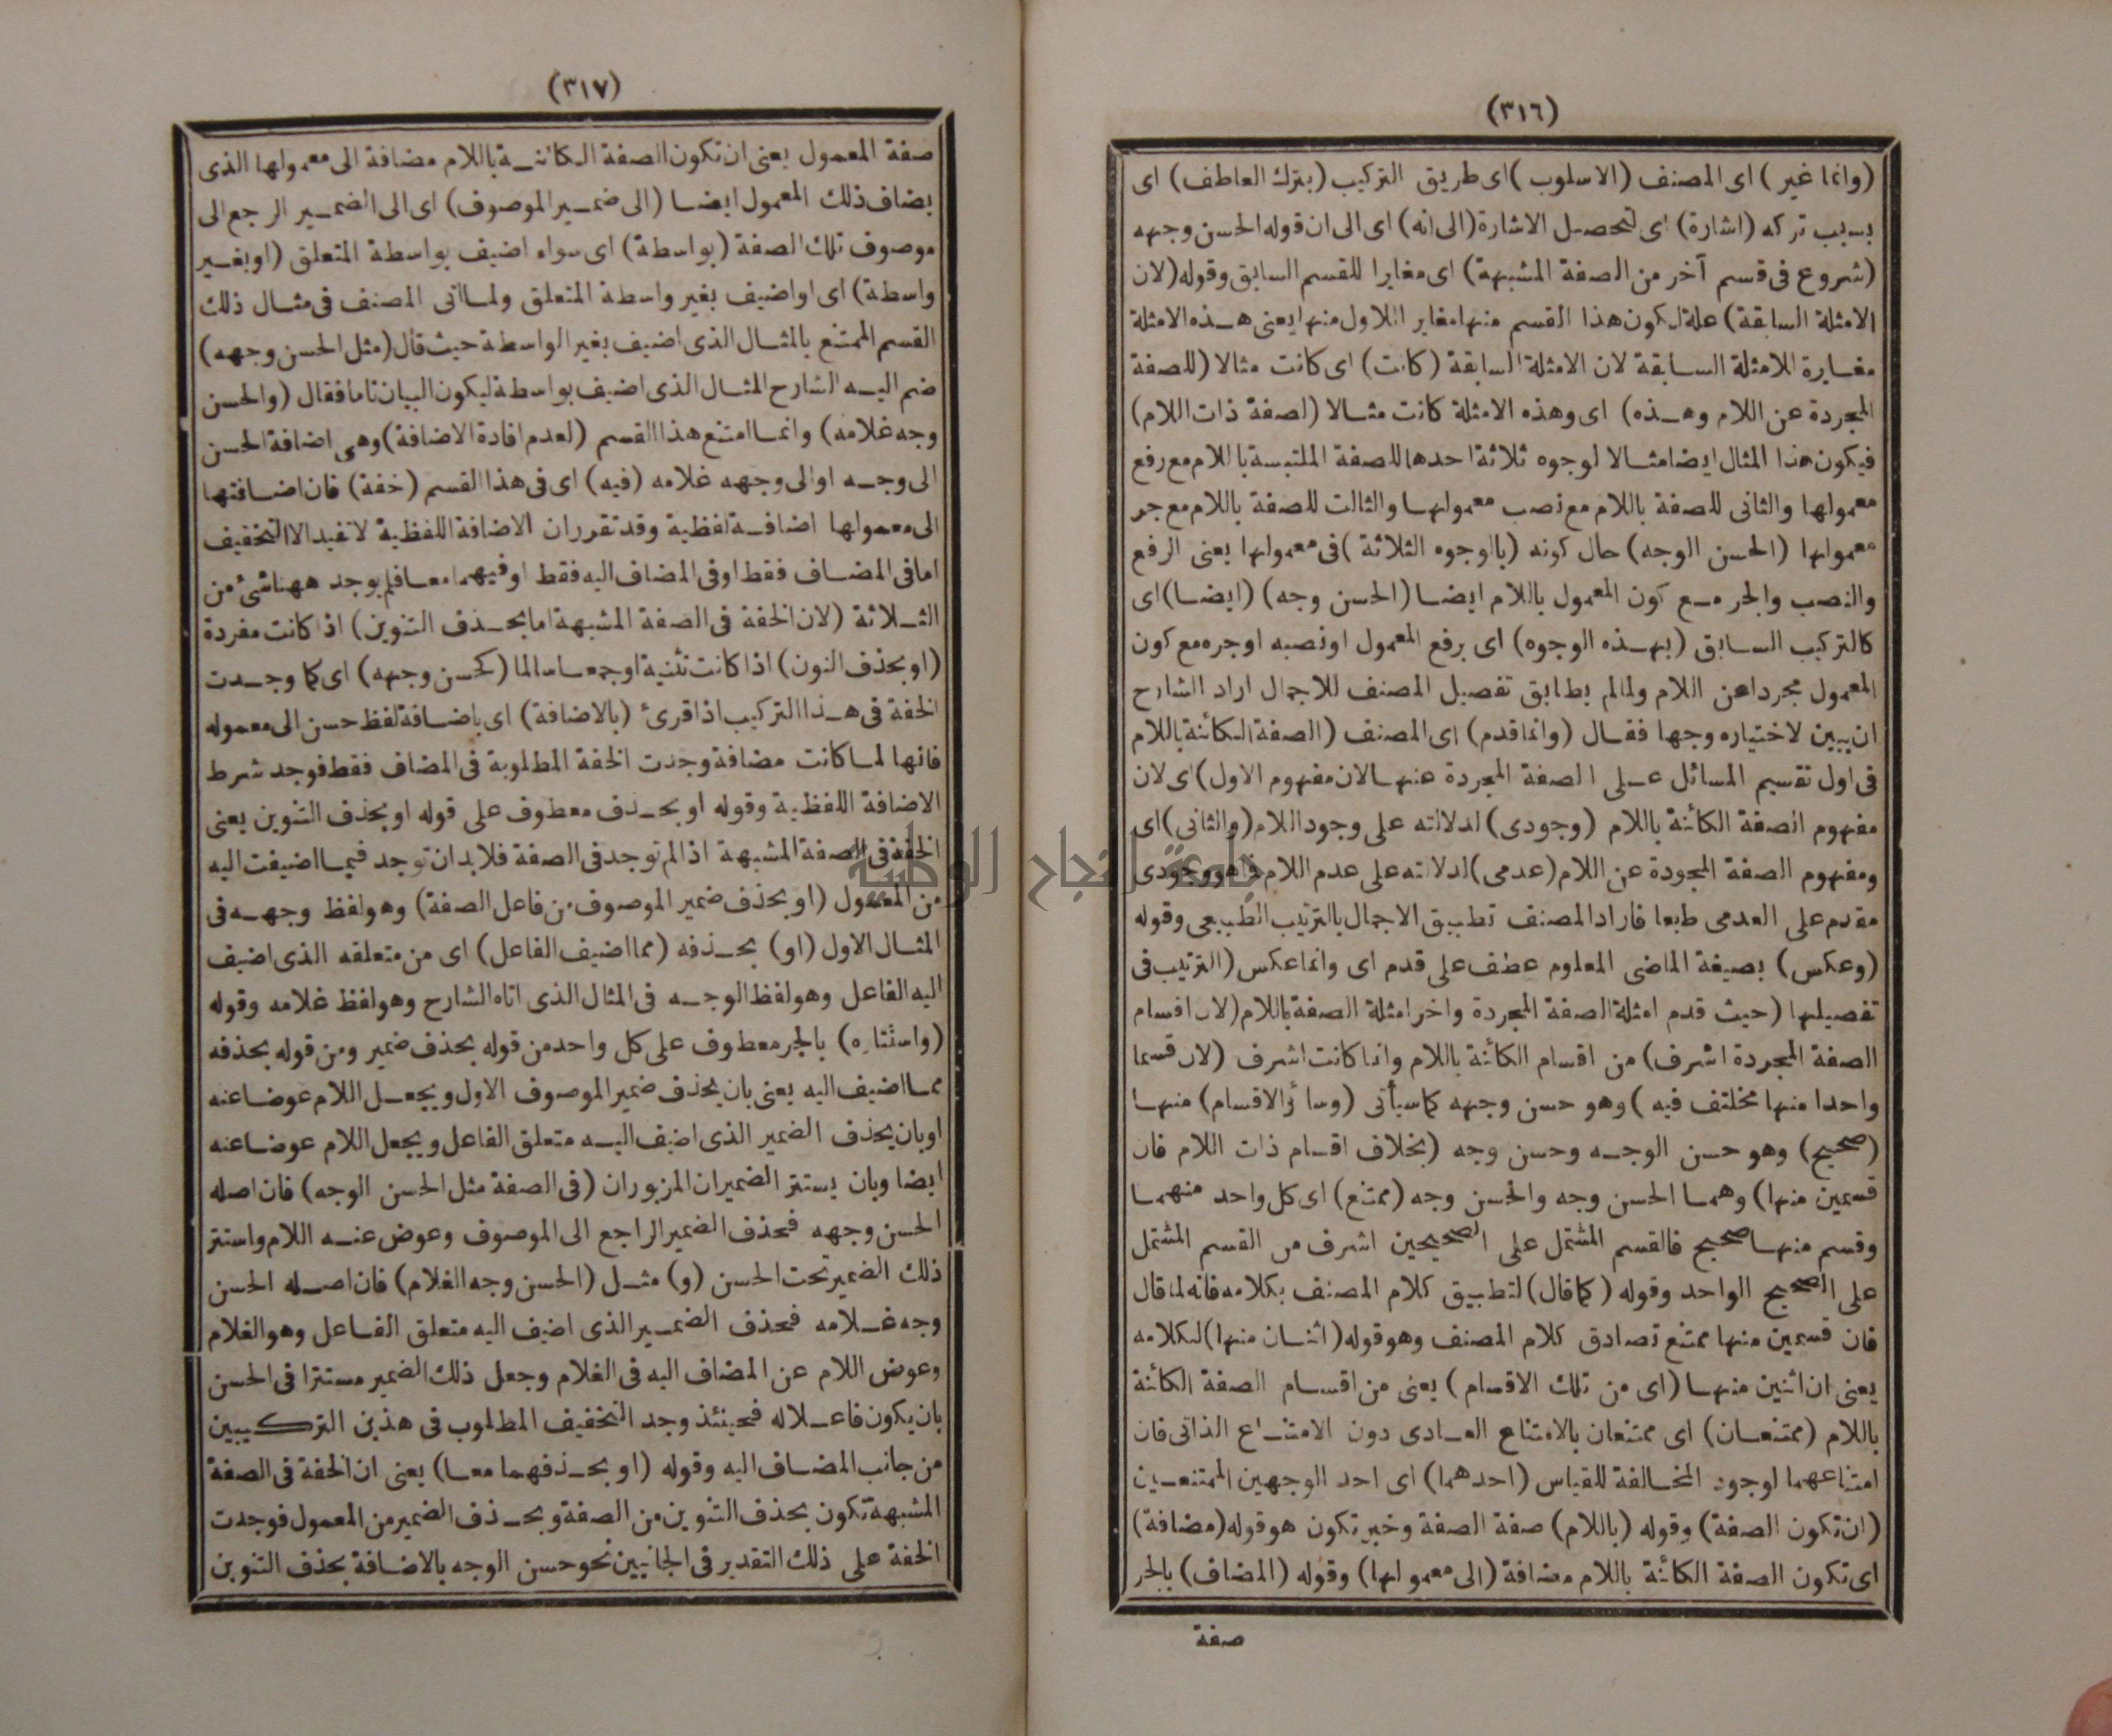 (٣١٦)
(وانما غير) اى المصنف (الاسلوب) اى طريق التركيب (بترك العاطف) اى
بسبب تركه (اشارة) اى لتحصيل الاشارة (الى انه) اى الى ان قوله الحسن وجهه
(شروع فى قسم آخر من الصفة المشبهة) اى مغايرا للقسم السابق وقوله (لان
الامثلة السابقة) علة لكون هذا القسم منها مغاير اللاول منها يعنى هذه الامثلة
مغايرة للامثلة السابقة لان الامثلة السابقة (كانت) اى كانت مثالا (للصفة
المجردة عن اللام وهذه) اى وهذه الامثلة كانت مثالا (لصفة ذات اللام)
فيكون هذا المثال ايضا مثالا لوجوه ثلاثة احدها للصفة الملتبسة باللام مع رفع
معمولها والثانى للصفة باللام مع نصب معمولها والثالث للصفة باللام مع جر
معمولها (الحسن الوجه) حال كونه (بالوجوه الثلاثة) فى معمولها يعنى الرفع
والنصب والجر مع كون المعمول باللام ايضا (الحسن وجه) (ايضا) اى
كالتركيب السابق (بهذه الوجوه) اى برفع المعمول او نصبه او جره مع كون
المعمول مجردا عن اللام ولما لم يطابق تفصيل المصنف للاجمال اراد الشارح
ان يبين لاختياره وجها فقال (وانما قدم) اى المصنف (الصفة الكائنة باللام
فى اول تقسيم المسائل على الصفة المجردة عنها لان مفهوم الاول) اى لان
مفهوم الصفة الكائنة باللام (وجودى) لدلالته على وجود اللام (والثانى) اى
ومفهوم الصفة المجردة عن اللام (عدمى) لدلالته على عدم اللام فما هو وجودى
مقدم على العدمى طبعا فاراد المصنف تطبيق الاجمال بالترتيب الطبيعى وقوله
(وعكس) بصيغة الماضى المعلوم عطف على قدم اى وانما عكس (الترتيب فى
تفصيلها) (حيث قدم امثلة الصفة المجردة واخر امثلة الصفة باللام (لان اقسام
الصفة المجردة اشرف) من اقسام الكائنة باللام وانما كانت اشرف (لان قسما
واحدا منها مختلف فيه) وهو حسن وجهه كما سيأتى (وسائر الاقسام) منها
(صحيح) وهو حسن الوجه وحسن وجه (بخلاف اقسام ذات اللام فان
قسمين منها) وهما الحسن وجه والحسن وجه (ممتنع) اى كل واحد منهما
وقسم منها صحيح فالقسم المشتمل على الصحيحين اشرف من القسم المشتمل
على الصحيح الواحد وقوله (كما قال) لتطبيق كلام المصنف بكلامه فانه لما قال
فان قسمين منها ممتنع تصادق كلام المصنف وهو قوله (اثنان منها) لكلامه
يعنى ان اثنين منها (اى من تلك الاقسام) يعنى من اقسام الصفة الكائنة
باللام (ممتنعان) اى ممتنعان بالامتناع العادى دون الامتناع الذاتى فان
امتناعهما لوجود المخالفة للقياس (احدهما) اى احد الوجهين الممتنعين
(ان تكون الصفة) وقوله (باللام) صفة الصفة وخبر تكون هو قوله (مضافة)
اى تكون الصفة الكائنة باللام مضافة (الى معمولها) وقوله (المضاف) بالجر
صفة
(٣١٧)
صفة المعمول يعنى ان تكون الصفة الكائنة باللام مضافة الى معمولها الذى
يضاف ذلك المعمول ايضا (الى ضمير الموصوف) اى الى الضمير الرجع الى
موصوف تلك الصفة (بواسطة) اى سواء اضيف بواسطة المتعلق (او بغير
واسطة) اى او اضيف بغير واسطة المتعلق ولما اتى المصنف فى مثال ذلك
القسم الممتنع بالمثال الذى اضيف بغير الواسطة حيث قال (مثل الحسن وجهه)
ضم اليه الشارح المثال الذى اضيف بواسطة ليكون البيان تاما فقال (والحسن
وجه غلامه) وانما امتنع هذا القسم (لعدم افادة الاضافة) وهى اضافة الحسن
الى وجه او الى وجهه غلامه (فيه) اى فى هذا القسم (خفة) فان اضافتها
الى معمولها اضافة لفظية وقد تقرر ان الاضافة اللفظية لا تفيد الا التخفيف
اما فى المضاف فقط او فى المضاف اليه فقط او فيهما معا فلم يوجد ههنا شئ من
الثلاثة (لان الخفة فى الصفة المشبهة اما بحذف التنوين) اذا كانت مفردة
(او بحذف النون) اذا كانت تثنية او جمعا سالما (كحسن وجهه) اى كما وجدت
الخفة فى هذا التركيب اذا قرئ (بالاضافة) اى باضافة لفظ حسن الى معموله
فانها لما كانت مضافة وجدت الخفة المطلوبة فى المضاف فقط فوجد شرط
الاضافة اللفظية وقوله او بحذف معطوف على قوله او بحذف التنوين يعنى
الخفة فى الصفة المشبهة اذا لم توجد فى الصفة فلا بد ان توجد فيما اضيفت اليه
من المعمول (او بحذف ضمير الموصوف من فاعل الصفة) وهو لفظ وجهه فى
المثال الاول (او) بحذفه (مما اضيف الفاعل) اى من متعلقه الذى اضيف
اليه الفاعل وهو لفظ الوجه فى المثال الذى اتاه الشارح وهو لفظ غلامه وقوله
(واستتاره) بالجر معطوف على كل واحد من قوله بحذف ضمير ومن قوله بحذفه
مما اضيف اليه يعنى بان يحذف ضمير الموصوف الاول ويجعل اللام عوضا عنه
او بان يحذف الضمير الذى اضيف اليه متعلق الفاعل ويجعل اللام عوضا عنه
ايضا وبان يستتر الضميران المزبوران (فى الصفة مثل الحسن الوجه) فان اصله
الحسن وجهه فحذف الضمير الراجع الى الموصوف وعوض عنه اللام واستتر
ذلك الضمير تحت الحسن (و) مثل (الحسن وجه الغلام) فان اصله الحسن
وجه غلامه فحذف الضمير الذى اضيف اليه متعلق الفاعل وهو الغلام
وعوض اللام عن المضاف اليه فى الغلام وجعل ذلك الضمير مستترا فى الحسن
بان يكون فاعلا له فحينئذ وجد التخفيف المطلوب فى هذين التركيبين
من جانب المضاف اليه وقوله (او بحذفهما معا) يعنى ان الخفة فى الصفة
المشبهة تكون بحذف التنوين من الصفة وبحذف الضمير من المعمول فوجدت
الخفة على ذلك التقدير فى الجانبين نحو حسن الوجه بالاضافة بحذف التنوين
جامعة النجاح الوطنية